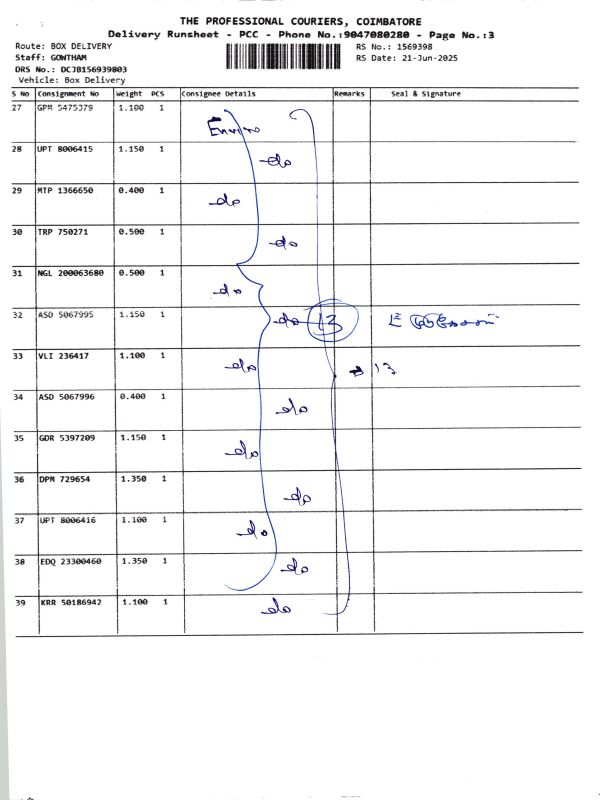 THE PROFESSIONAL COURIERS, COIMBATORE
Delivery Runsheet - PCC - Phone No.:9047080280 - Page No.:3
Route: BOX DELIVERY
Staff: GOWTHAM
DRS No.: DCJB156939803
Vehicle: Box Delivery
RS No.: 1569398
RS Date: 21-Jun-2025
S No Consignment No Weight PCS Consignee Details Remarks Seal & Signature
27 GPM 5475379 1.100 1
28 UPT 8006415 1.150 1 do
29 MTP 1366650 0.400 1 do
30 TRP 750271 0.500 1 do
31 NGL 200063680 0.500 1 do
32 ASD 5067995 1.150 1 do 13
33 VLI 236417 1.100 1 do 13
34 ASD 5067996 0.400 1 do
35 GDR 5397209 1.150 1 do
36 DPM 729654 1.350 1 do
37 UPT 8006416 1.100 1 do
38 EDQ 23300460 1.350 1 do
39 KRR 50186942 1.100 1 do